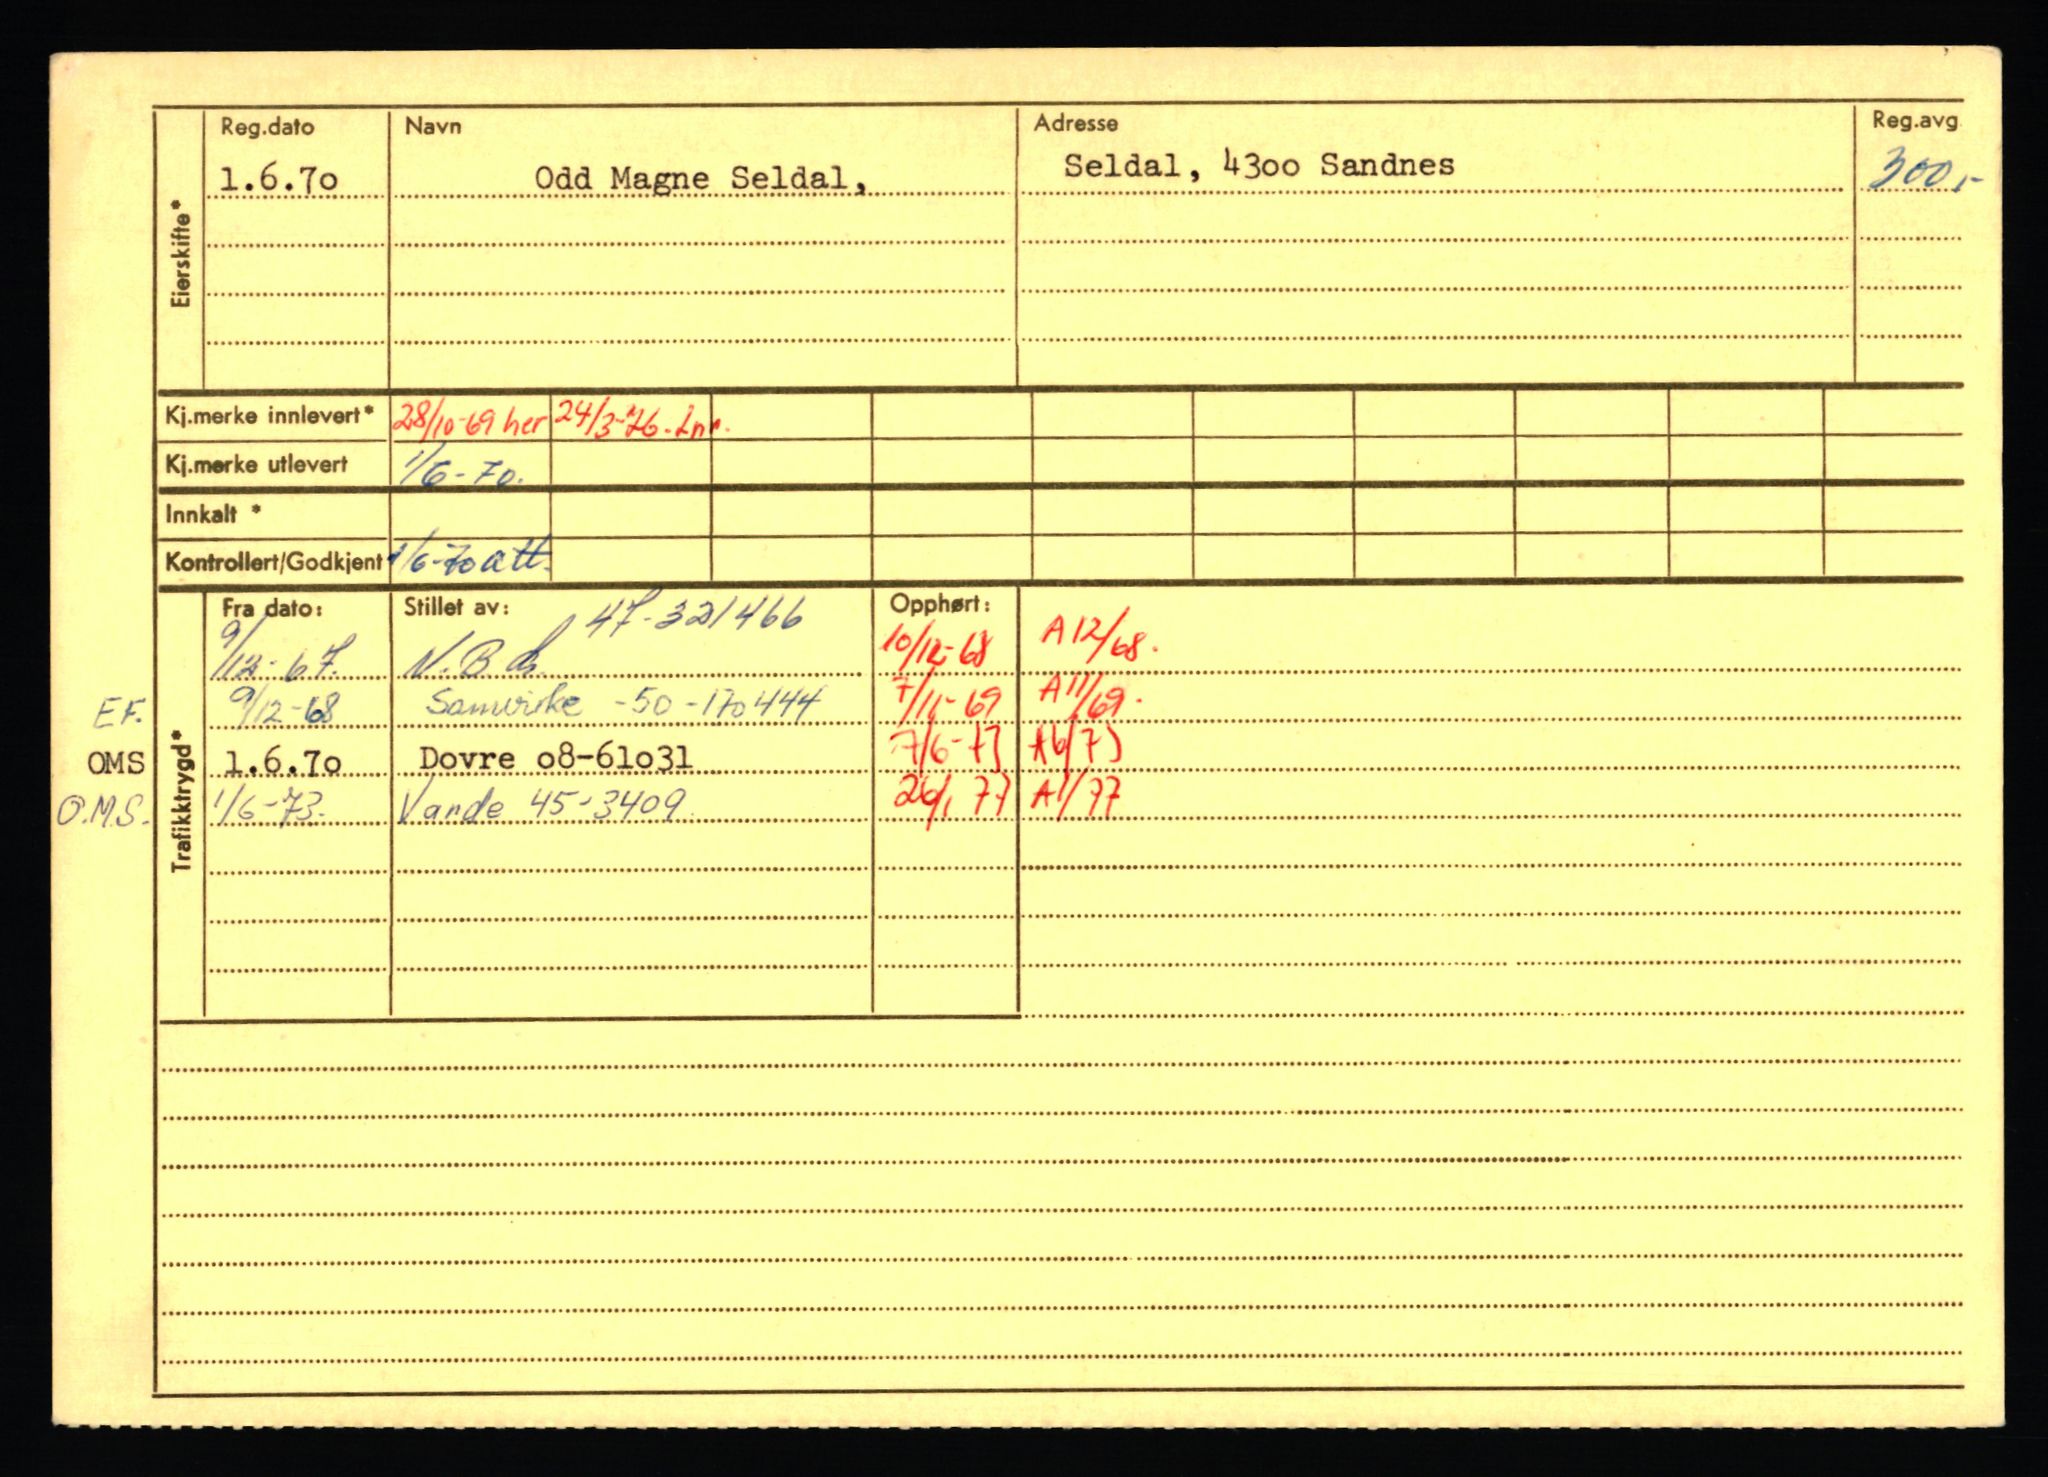 Reg.dato Navn Adresse Reg.avg
1.6.70 Odd Magne Seldal, Seldal, 4300 Sandnes 300,-
Eierskifte*
Kj.merke innlevert* 28/10-69 her 24/3-76. Inr.
Kj.merke utlevert 1/6-70.
Innkalt *
Kontrollert/Godkjent 1/6-70 att.
Fra dato: Stillet av: Opphørt:
47-321466
9/12-67. N.B. 10/12-68 A12/68.
EF. 9/12-68 Samvirke -50-170444 7/11-69 A11/69.
OMS 1.6.70 Dovre 08-61031 7/6-73 A6/73
O.M.S. 1/6-73. Varde 45-3409. 26/1 77 A1/77
Trafikktrygd*